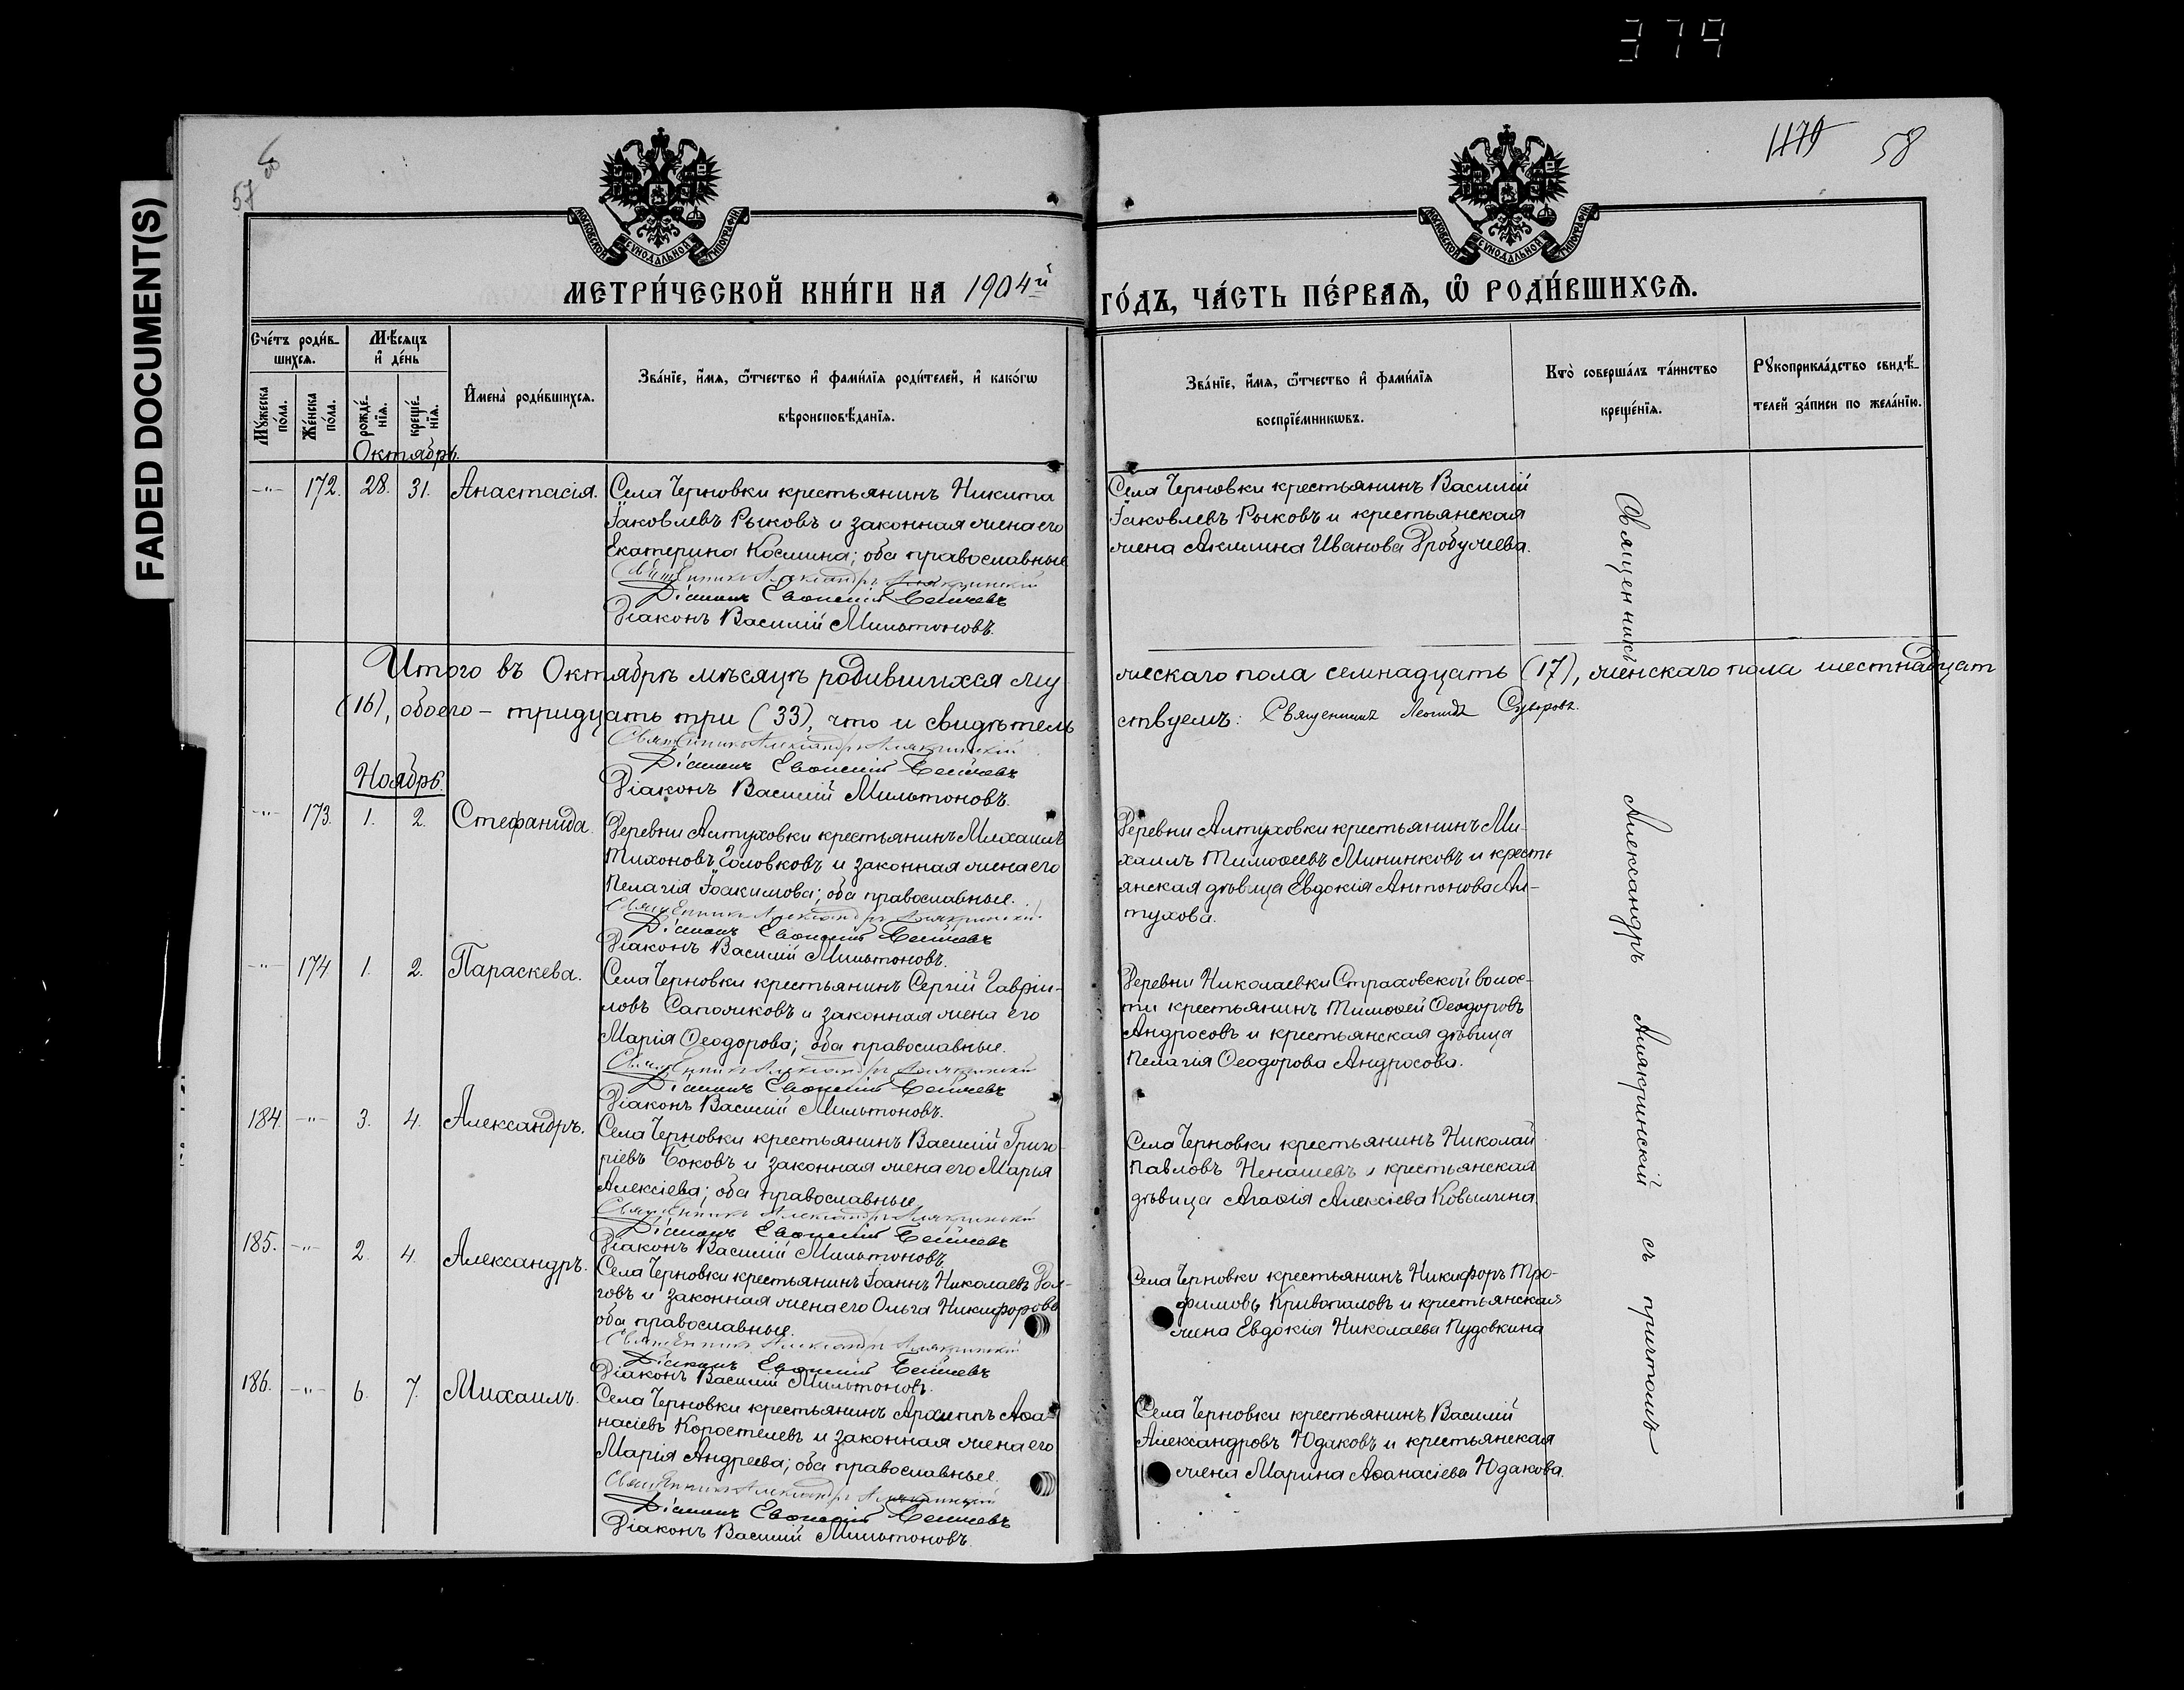 379
FADED DOCUMENT(S)
57 об
1179 58
МОСКОВСКОЙ СѴНОДАЛЬНОЙ ТИПОГРАФІИ
МОСКОВСКОЙ СѴНОДАЛЬНОЙ ТИПОГРАФІИ
МЕТРИ́ЧЕСКОЙ КНИ́ГИ НА 1904й
ГО́ДЪ, ЧА́СТЬ ПЕ́РВАѦ, Ѽ РОДИ́ВШИХСѦ.
Сче́тъ роди́в-
шихсѧ.
Мѣ́сѧцъ
и҆ де́нь
Мꙋ́жеска по́ла.
Же́нска по́ла.
рожде́нїѧ.
креще́нїѧ.
И҆мена̀ роди́вшихсѧ.
Зва́нїе, и҆́мѧ, ѻ҆́тчество и҆ фами́лїѧ роди́телей, и҆ како́гѡ
вѣроисповѣ́данїѧ.
Зва́нїе, и҆́мѧ, ѻ҆́тчество и҆ фами́лїѧ
воспрїе́мникѡвъ.
Кто̀ соверша́лъ та́инство
креще́нїѧ.
Рꙋкоприкла́дство свидѣ́-
телей за́писи по жела́нїю.
Октябрь.
-"- 172. 28. 31. Анастасія.
Села Черновки крестьянинъ Никита
Іаковлевъ Рыковъ и законная жена его
Екатерина Космина; оба православные
Священникъ Александръ Алякринскій
Діаконъ Василій Мильтоновъ.
Села Черновки крестьянинъ Василій
Іаковлевъ Рыковъ и крестьянская
жена Акилина Иванова Дробужева.
Итого въ Октябрѣ мѣсяцѣ родившихся му
жескаго пола семнадцать (17), женскаго пола шестнадцать
(16), обоего - тридцать три (33), что и свидѣтель
ствуемъ: Священникъ Леонидъ Суворовъ.
Священникъ Александръ Алякринскій
Діаконъ Василій Мильтоновъ.
Ноябрь.
-"- 173. 1. 2. Стефанида.
Деревни Алтуховки крестьянинъ Михаилъ
Тихоновъ Головковъ и законная жена его
Пелагія Іоакимова; оба православные.
Священникъ Александръ Алякринскій
Діаконъ Василій Мильтоновъ.
Деревни Алтуховки крестьянинъ Ми-
хаилъ Тимоѳеевъ Мининковъ и кресть
янская дѣвица Евдокія Антонова Ал-
тухова.
-"- 174 1. 2. Параскева.
Села Черновки крестьянинъ Сергій Гавріи-
ловъ Сапожковъ и законная жена его
Марія Ѳеодорова; оба православные.
Священникъ Александръ Алякринскій
Діаконъ Василій Мильтоновъ.
Деревни Николаевки Страховской волос-
ти крестьянинъ Тимоѳей Ѳеодоровъ
Андросовъ и крестьянская дѣвица
Пелагія Ѳеодорова Андросова.
184. -"- 3. 4. Александръ.
Села Черновки крестьянинъ Василій Григо-
ріевъ Боковъ и законная жена его Марія
Алексіева; оба православные
Священникъ Александръ Алякринскій
Діаконъ Василій Мильтоновъ.
Села Черновки крестьянинъ Николай
Павловъ Ненашевъ и крестьянская
дѣвица Агаѳія Алексіева Ковылина
185. -"- 2. 4. Александръ.
Села Черновки крестьянинъ Іоаннъ Николаевъ Дол-
говъ и законная жена его Ольга Никифорова
оба православные.
Священникъ Александръ Алякринскій
Діаконъ Василій Мильтоновъ.
Села Черновки крестьянинъ Никифоръ Тро-
фимовъ Кривопаловъ и крестьянская
жена Евдокія Николаева Пудовкина
186. -"- 6. 7. Михаилъ.
Села Черновки крестьянинъ Архиппъ Аѳа-
насіевъ Коростелевъ и законная жена его
Марія Андреева; оба православные.
Священникъ Александръ Алякринскій
Діаконъ Василій Мильтоновъ.
Села Черновки крестьянинъ Василій
Александровъ Юдаковъ и крестьянская
жена Марина Аѳанасіева Юдакова.
Священникъ Александръ Алякринскій съ причтомъ